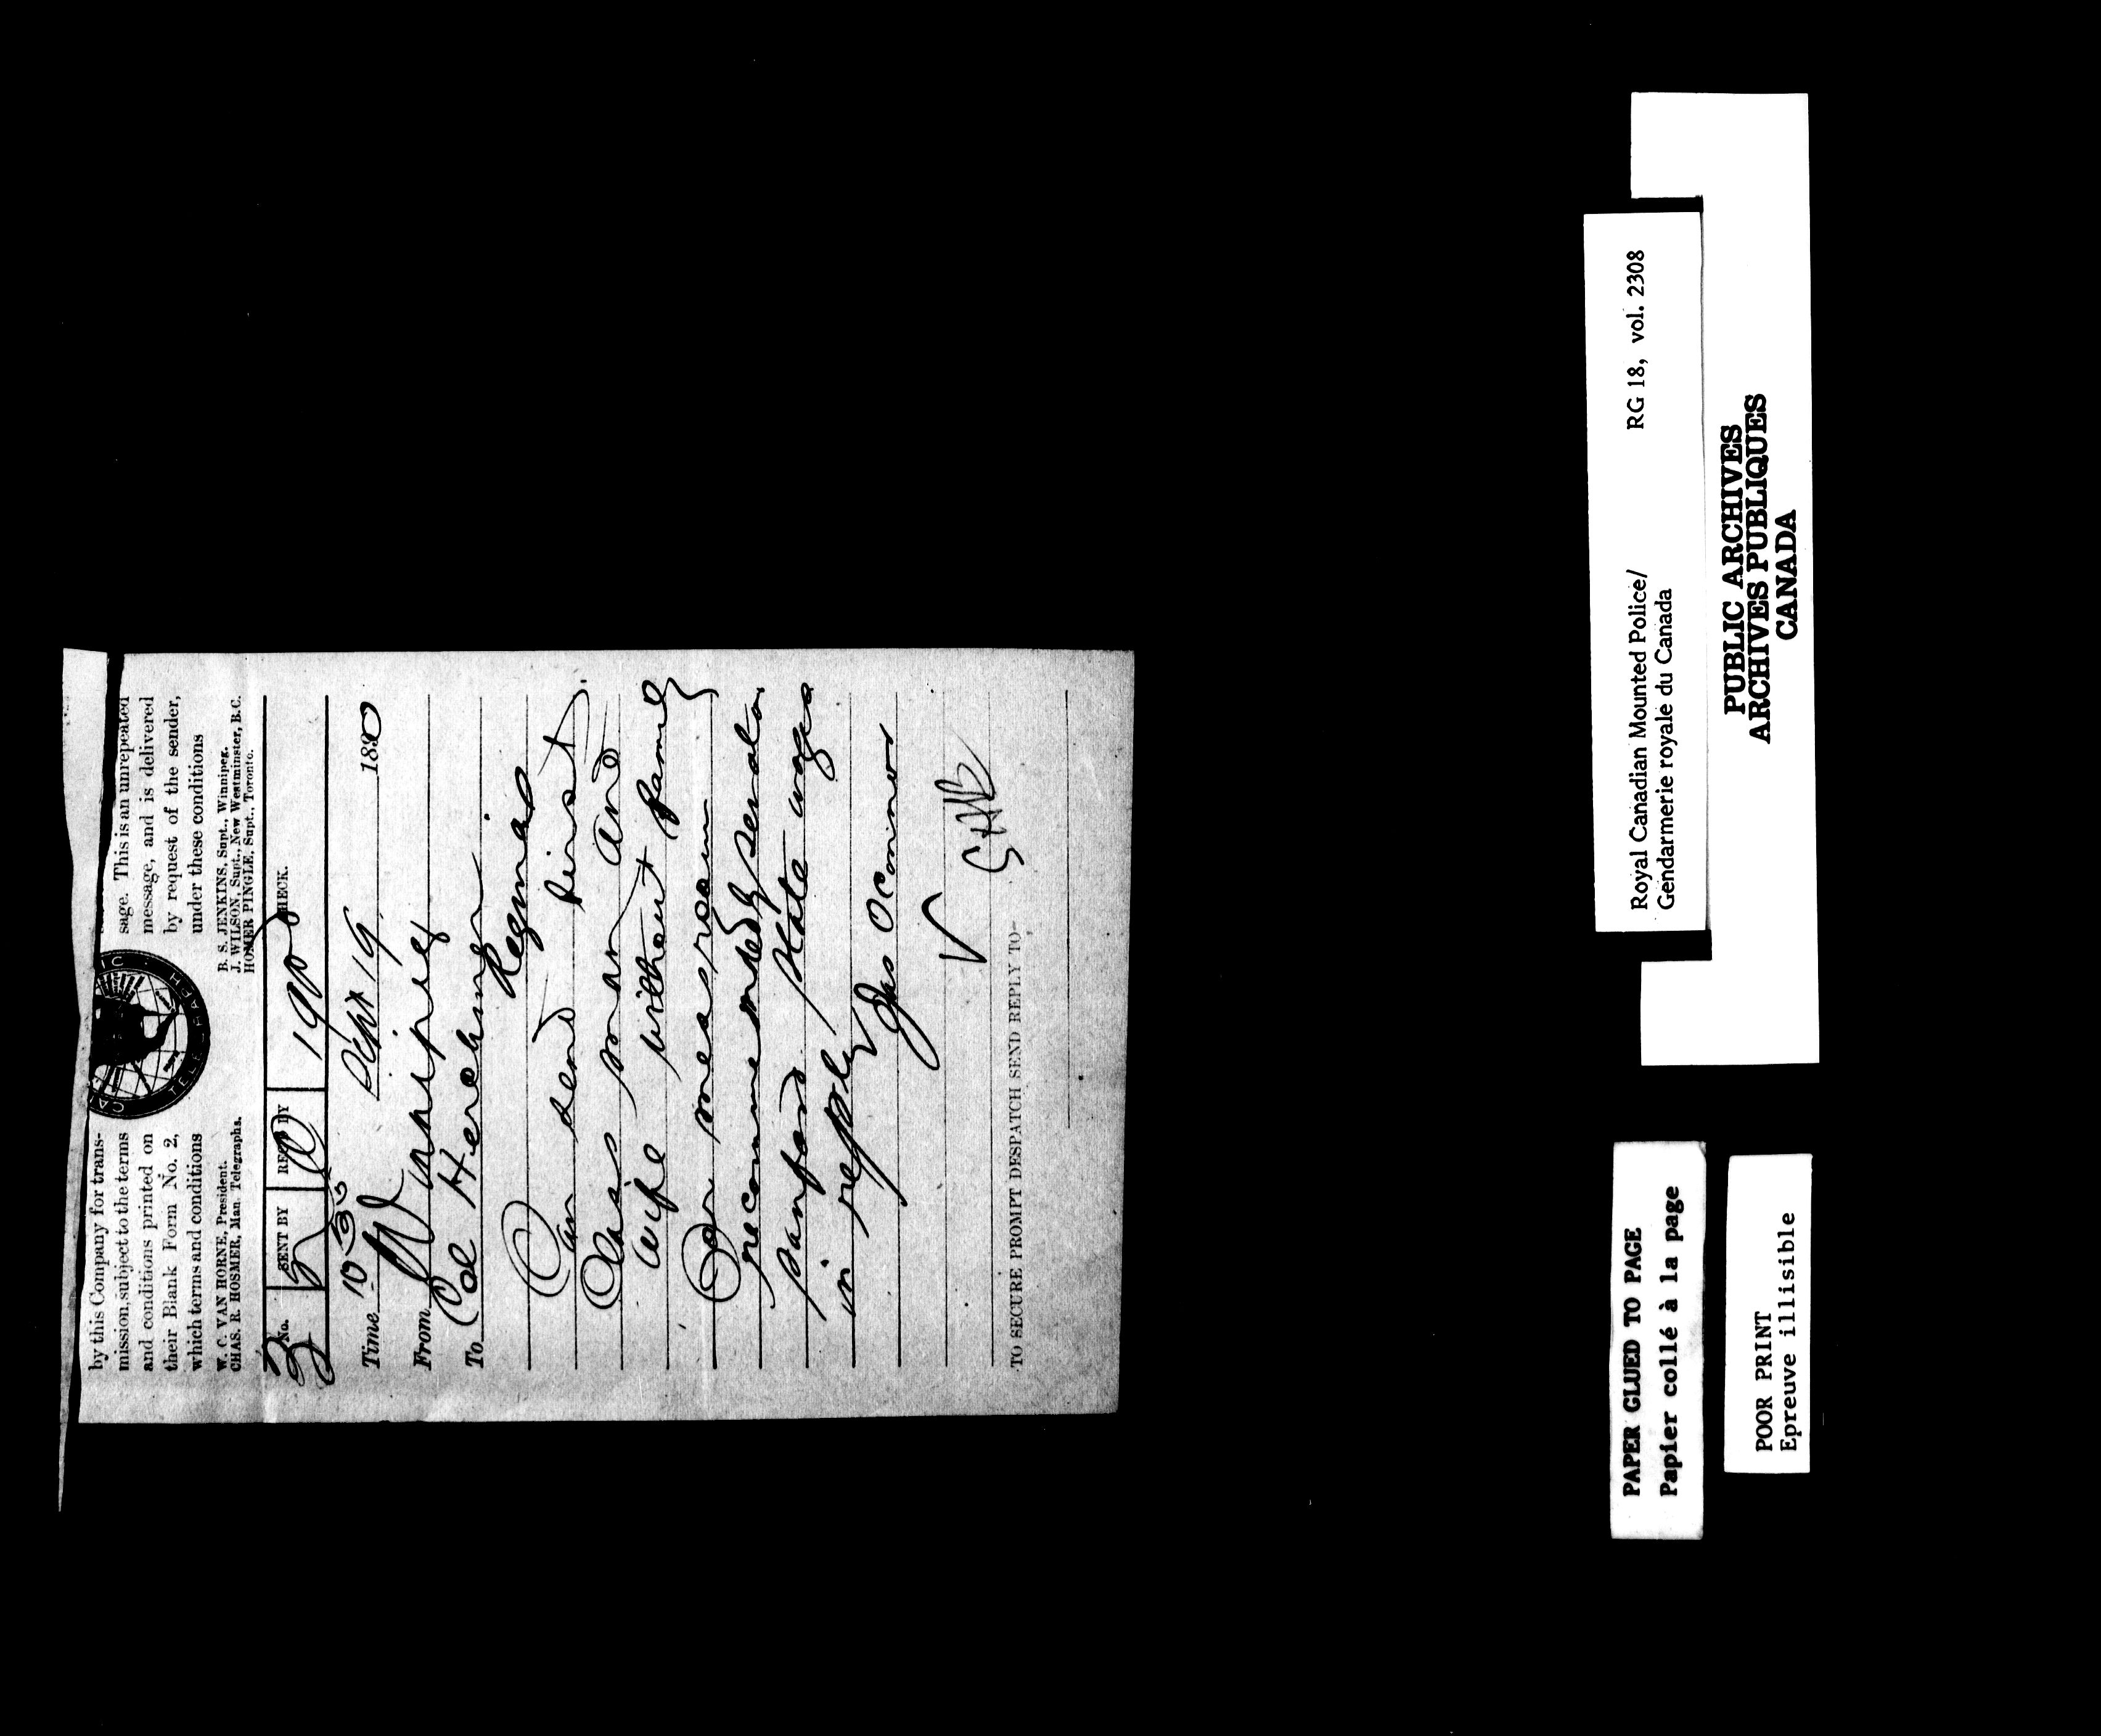 by this Company for trans-
mission, subject to the terms
and conditions printed on
their Blank Form No. 2,
which terms and conditions
sage. This is an unrepeated
message, and is delivered
by request of the sender,
under these conditions
W. C. VAN HORNE, President.
CHAS. R. HOSMER, Man. Telegraphs.
B. S. JENKINS, Supt., Winnipeg.
J. WILSON, Supt., New Westminster, B.C.
HOMER PINGLE, Supt., Toronto.
No. SENT BY REC'D BY CHECK.
Time Sept 19 1890
From Winnipeg
To Col Herchmer
Regina
Can send first
Class man and
wife without family
for messroom
recommended by senator
Sanford state wages
in reply
Jas OConnor
TO SECURE PROMPT DESPATCH SEND REPLY TO
Royal Canadian Mounted Police/ RG 18, vol. 2308
Gendarmerie royale du Canada
PUBLIC ARCHIVES
ARCHIVES PUBLIQUES
CANADA
PAPER GLUED TO PAGE
Papier collé à la page
POOR PRINT
Epreuve illisible